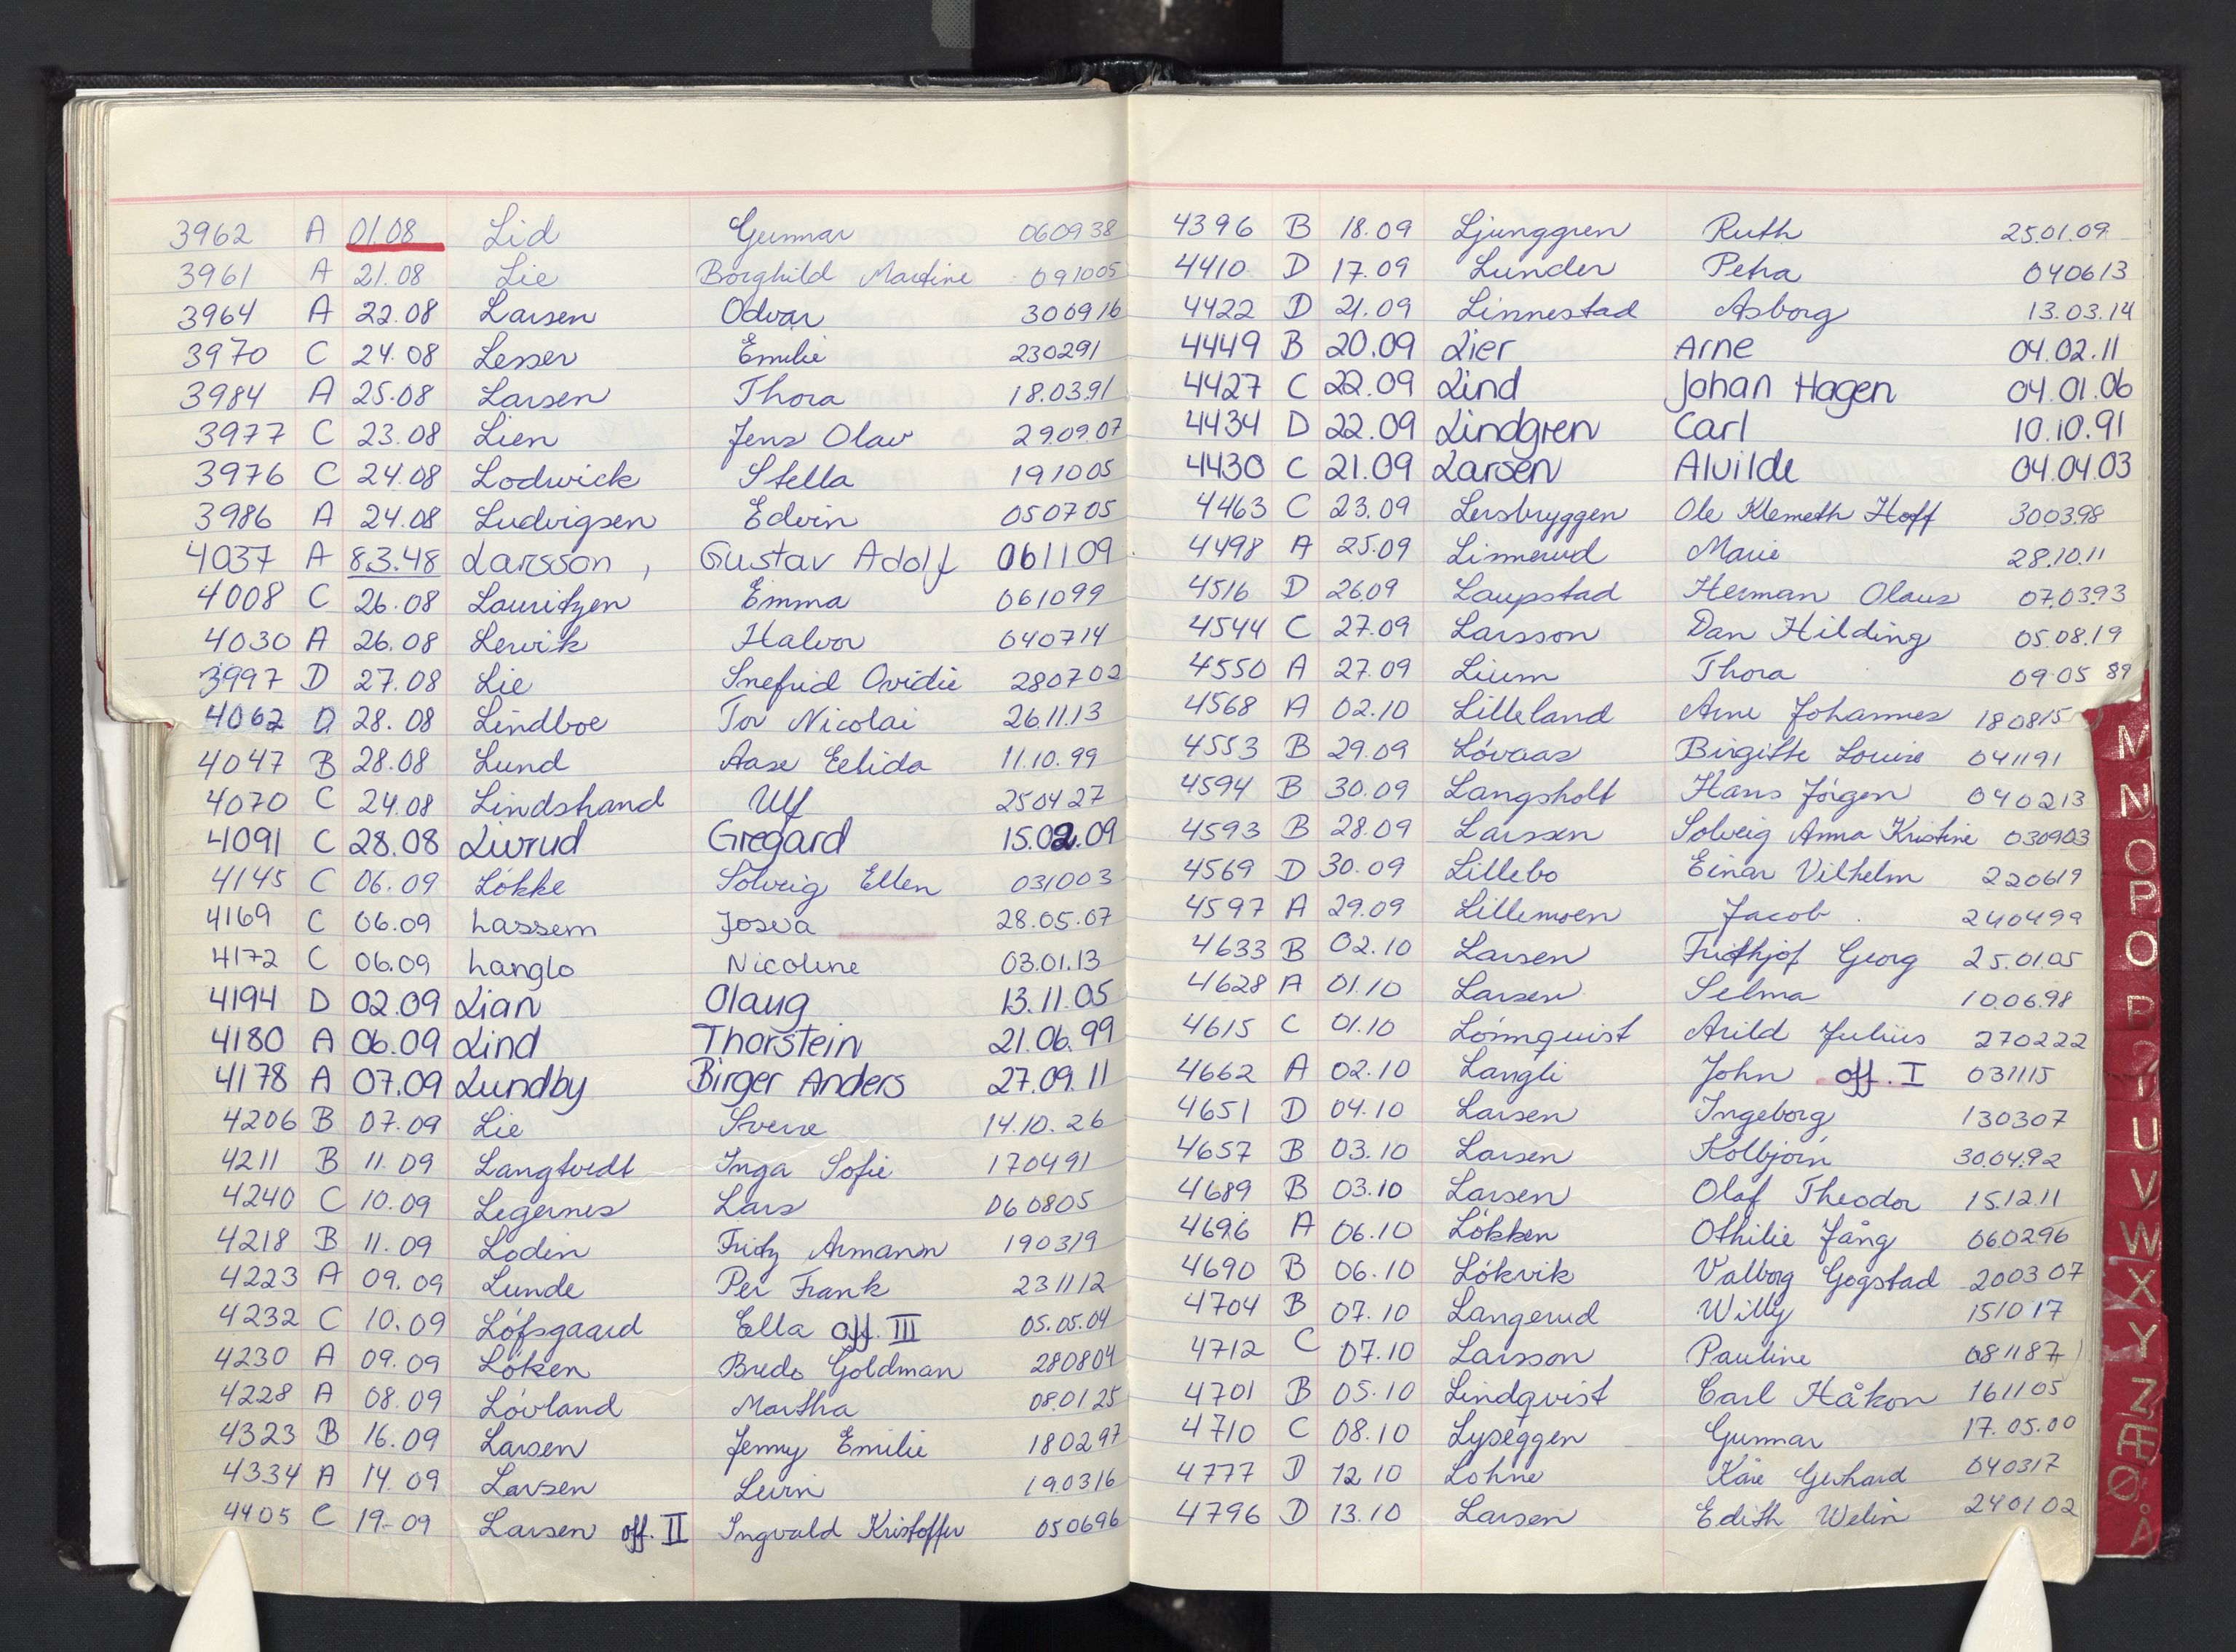 3962 A 01.08 Lid Gunnar 060938
3961 A 21.08 Lie Borghild Martine 091005
3964 A 22.08 Larsen Odvar 300916
3970 C 24.08 Lesser Emilie 230291
3984 A 25.08 Larsen Thora 18.03.91
3977 C 23.08 Lien Jens Olav 29.09.07
3976 C 24.08 Lodwick Stella 191005
3986 A 24.08 Ludvigsen Edvin 050705
4037 A 8.3.48 Larsson, Gustav Adolf 061109
4008 C 26.08 Lauritzen Emma 061099
4030 A 26.08 Lervik Halvor 040714
3997 D 27.08 Lie Snefrid Ovidie 280702
4062 D 28.08 Lindboe Tor Nicolai 26.11.13
4047 B 28.08 Lund Aase Elida 11.10.99
4070 C 24.08 Lindstrand Ulf 250427
4091 C 28.08 Livrud Gregard 15.02.09
4145 C 06.09 Løkke Solveig Ellen 031003
4169 C 06.09 Lassem Joseva 28.05.07
4172 C 06.09 Langlo Nicoline 03.01.13
4194 D 02.09 Lian Olaug 13.11.05
4180 A 06.09 Lind Thorstein 21.06.99
4178 A 07.09 Lundby Birger Anders 27.09.11
4206 B 07.09 Lie Sverre 14.10.26
4211 B 11.09 Langtvedt Inga Sofie 170491
4240 C 10.09 Legernes Lars 060805
4218 B 11.09 Lodin Fritz Armann 190319
4223 A 09.09 Lunde Per Frank 231112
4232 C 10.09 Løfsgaard Ella off. III 05.05.04
4230 A 09.09 Løken Bredo Goldman 280804
4228 A 08.09 Løvland Martha 08.01.25
4323 B 16.09 Larsen Jenny Emilie 180297
4334 A 14.09 Larsen Levin 190316
4405 C 19-09 Larsen off. II Ingvald Kristoffer 050696
4396 B 18.09 Ljunggren Ruth 25.01.09
4410 D 17.09 Lunder Petra 040613
4422 D 21.09 Linnestad Asborg 13.03.14
4449 B 20.09 Lier Arne 04.02.11
4427 C 22.09 Lind Johan Hagen 04.01.06
4434 D 22.09 Lindgren Carl 10.10.91
4430 C 21.09 Larsen Alvilde 04.04.03
4463 C 23.09 Lersbryggen Ole Klemeth Hoff 300398
4498 A 25.09 Linnerud Marie 28.10.11
4516 D 26.09 Laupstad Herman Olaus 07.03.93
4544 C 27.09 Larsson Dan Hilding 05.08.19
4550 A 27.09 Lium Thora 09.05 89
4568 A 02.10 Lilleland Arne Johannes 180815
4553 B 29.09 Løvaas Birgitte Louise 041191
4594 B 30.09 Langsholt Hans Jørgen 040213
4593 B 28.09 Larssen Solveig Anna Kristine 030903
4569 D 30.09 Lillebo Einar Vilhelm 220619
4597 A 29.09 Lillemoen Jacob 240499
4633 B 02.10 Larsen Fridthjof Georg 25.01.05
4628 A 01.10 Larsen Selma 10.06.98
4615 C 01.10 Lönnquist Arild Julius 270222
4662 A 02.10 Langli John off. I 031115
4651 D 04.10 Larsen Ingeborg 130307
4657 B 03.10 Larsen Kolbjørn 30.04.92
4689 B 03.10 Larsen Olaf Theodor 15.12.11
4696 A 06.10 Løkken Othilie Jång 060296
4690 B 06.10 Løkvik Valborg Gogstad 200307
4704 B 07.10 Langerud Willy 151017
4712 C 07.10 Larsson Pauline 081187
4701 B 05.10 Lindqvist Carl Håkon 161105
4710 C 08.10 Lyseggen Gunnar 17.05.00
4777 D 12.10 Lohne Kåre Gerhard 040317
4796 D 13.10 Larsen Edith Welin 240102
M
N
O
P
U
V
W
X
Y
Z
Æ
Ø
Å